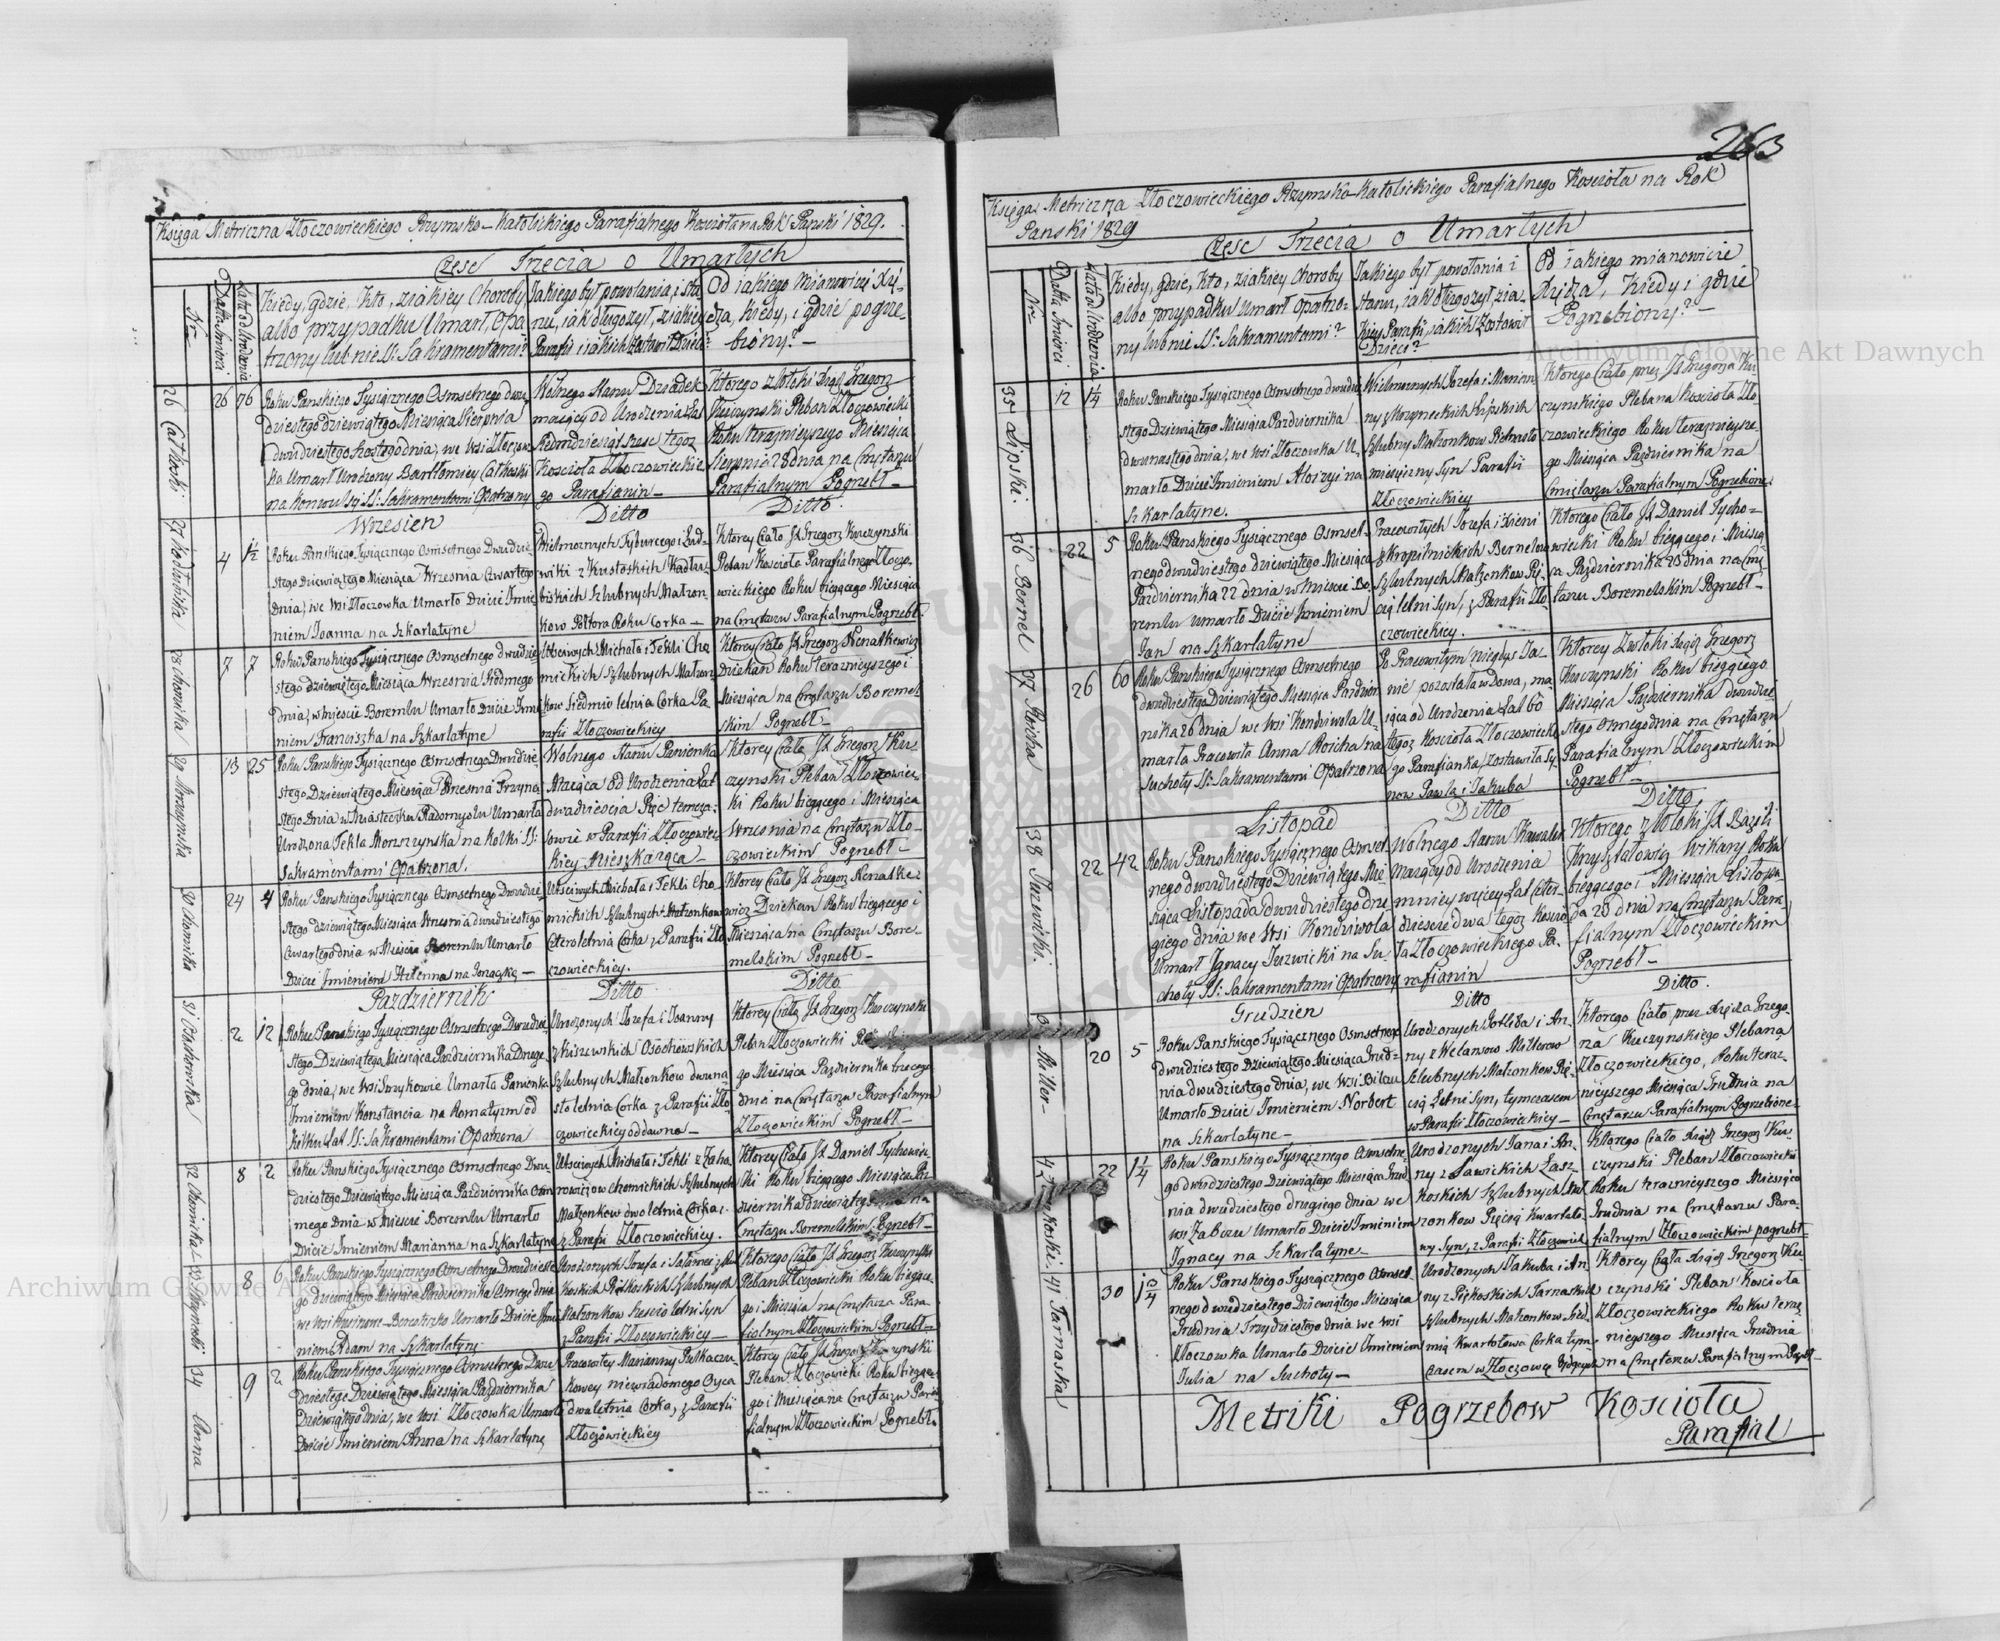 263
Księga Metriczna Złoczowieckiego Rzymsko-Katolickiego Parafialnego Kościoła na Rok Pański 1829.
Częsc Trzecia o Umarłych
Nro
Datta Smierci
Lata od Urodzenia
Kiedy, gdzie, Kto, z iakiey Choroby
albo przypadku Umarł, Opa
trzony lub nie SS: Sakramentami?
Jakiego był powołania, i sta
nu, iak długo żył, z iakiey
Parafii i iakich Zostawił Dzieci?
Od iakiego Mianowicie Xię-
dza, Kiedy, i gdzie pogrze
biony?
26 Całkoski
26
76
Roku Panskiego Tysiącznego Osmsetnego dwu
dziestego dziewiątego Miesiąca Sierpnia
dwudziestego szostego dnia, we Wsi Złoczow
ka Umarł Urodzony Bartłomiey Całkoski
na Konwulsyi SS: Sakramentami Opatrzony
Wolnego Stanu Dziadek
maiący od Urodzenia Lat
Siedmdziesiąt szesc tegoz
Koscioła Złoczowieckie
go Parafianin
Ktorego zwłoki Xiądz Grzegorz
Kuczynski Pleban Złoczowiecki
Roku teraznieyszego Miesiąca
Sierpnia 28 dnia na Cmętarzu
Parafialnym Pogrzebł
Wrzesien
Ditto
Ditto
27 Kadłubiska
4
1½
Roku Panskiego Tysiącznego Osmsetnego Dwudzie
stego Dziewiątego Miesiąca Wrzesnia Czwartego
Dnia, we Wsi Złoczowka Umarło Dzicie Imie
niem Joanna na Szkarlatynę
Wielmoznych Tyburcego i Lud-
wiki z Kustoskich Kadłu-
biskich Szlubnych Małzon
kow Połtora Roku Corka
Ktorey Ciało Xd Grzegorz Kuczynski
Pleban Koscioła Parafialnego Złoczo-
wieckiego Roku bieżącego Miesiąca
na Cmętarzu Parafialnym Pogrzebł.
28 Chomicka
7
7
Roku Panskiego Tysiącznego Osmsetnego dwudzie
stego dziewiętego Miesiąca Wrzesnia Siodmego
Dnia, w Miescie Boremlu Umarło Dzicie Imie
niem Franciszka na Szkarlatynę
Uczciwych Michała i Tekli Cho
mickich Szlubnych Małzon
kow Siedmio letnia Corka Pa
rafii Złoczowieckiey
Ktorey Ciało Xd Grzegorz Nenatkewicz
Dziekan Roku teraznieyszego i
Miesiąca na Cmętarzu Boremel
skim Pogrzebł
13
25
Roku Panskiego Tysiącznego Osmsetnego Dwudzie
stego Dziewiątego Miesiąca Wrzesnia Trzyna
stego Dnia w Miasteczku Radomyslu Umarła
Urodzona Tekla Morszynska na Kolki SS:
Sakramentami Opatrzona.
Wolnego Stanu Panienka
Maiąca od Urodzenia Lat
dwadziescia Pięc temcza:
sowie w Parafii Złoczowiec
kiey Mieszkaiąca
Ktorey Ciało Xd Grzegorz Ku-
czynski Pleban Złoczowiec
ki Roku bieżącego i Miesiąca
Wrzesnia na Cmętarzu Zło-
czowieckim Pogrzebł
30 Chomicka
24
4
Roku Panskiego Tysiącznego Osmsetnego Dwudzie
stego dziewiątego Miesiąca Wrzesnia dwudziestego
Czwartego dnia w Miescie Boremlu Umarło
Dzicie Imieniem Helenna na Gorączkę
Uczciwych Michała i Tekli Cho
mickich Szlubnych Małzonkow
Cztero letnia Corka z Parafii Zło
czowieckiey.
Ktorey Ciało Xd Grzegorz Nenatke-
wicz Dziekan Roku bieżącego i
Miesiąca na Cmętarzu Bore-
melskim Pogrzebł
Pazdziernik
Ditto
Ditto
2
12
Roku Panskiego Tysiącznego Osmsetnego Dwudzie
stego Dziewiątego Miesiąca Pazdziernika Drugie
go dnia, we Wsi Smykowie Umarła Panienka
Imieniem Konstancia na Romatyzm od
Kilku Lat SS: Sakramentami Opatrzona
Urodzonych Jozefa i Joanny
z Kiszewskich Osochowskich
Szlubnych Małzonkow dwuna
sto letnia Corka z Parafii Zło
czowieckiey oddawna
Ktorey Ciało Xd Grzegorz Kuczynski
Pleban Złoczowiecki
go Miesiąca Pazdziernika trzecego
dnia na Cmętarzu Parafialnym
Złoczowieckim Pogrzebł
32 Chomicka
8
2
Roku Panskiego Tysiącznego Osmsetnego Dwu
dziestego Dziewiątego Miesiąca Pazdziernika Osm
mego Dnia w Miescie Boremlu Umarło
Dzicie Imieniem Marianna na Szkarlatynę
Uczciwych Michała i Tekli z Zaha
rowiczow Chomickich Szlubnych
Małzonkow dwoletnia Corka,
z Parafii Złoczowieckiey.
Ktorey Ciało Xd Daniel Tychowiec
ki Roku bieżącego Miesiąca Pa
zdziernika dziewiątego dnia na
Cmętarzu Boremelskim Pogrzebł
8
6
Roku Panskiego Tysiącznego Osmsetnego Dwudzieste
go dziewiątego Miesiąca Pazdziernika Osmego dnia
we Wsi Beresteczko Umarło Dzicie Imie
niem Adam na Szkarlatynę
Urodzonych Jozefa i Salomei z
Szlubnych
Małzonkow szescio letni Syn
z Parafii Złoczowieckiey
Ktorego Ciało Xd Grzegorz Kuczynski
Pleban Złoczowiecki Roku bieżące
go i Miesiąca na Cmętarzu Para
fialnym Złoczowieckim Pogrzebł
34 Anna
9
2
Roku Panskiego Tysiącznego Osmsetnego Dwu
dziestego Dziewiątego Miesiąca Pazdziernika
Dziewiątego dnia, we Wsi Złoczowka Umarło
Dzicie Imieniem Anna na Szkarlatynę
Pracowitey Marianny Putkaczu-
kowey niewiadomego Oyca
dwuletnia Corka, z Parafii
Złoczowieckiey
Ktorey Ciało Xd Grzegorz Kuczynski
Pleban Złoczowiecki Roku bieżące
go i Miesiąca na Cmętarzu Para
fialnym Złoczowieckim Pogrzebł.
Księga Metriczna Złoczowieckiego Rzymsko-Katolickiego Parafialnego Koscioła na Rok
Panski 1829
Częsc Trzecia o Umarłych
Nro
Datta Smierci
Lata od Urodzenia
Kiedy, gdzie, Kto, z iakiey Choroby
albo przypadku Umarł Opatrzo-
ny lub nie SS: Sakramentami?
Jakiego był powołania i
Stanu, iak długo żył z ia-
kiey Parafii, iakich Zostawił
Dzieci?
Od iakiego mianowicie
Xiędza, Kiedy i gdzie
Pogrzebiony?
35 Lipski.
12
1/4
Roku Panskiego Tysiącznego Osmsetnego dwudzie
stego Dziewiątego Miesiąca Pazdziernika
dwunastego dnia, we Wsi Złoczowka U-
marło Dzicie Imieniem Aloizy na
Szkarlatyne.
Wielmoznych Jozefa i Marian
ny z Morzyneckich Lipskich
Szlubny Małzonkow Pietnasto
miesięczny Syn Parafii
Złoczowieckiey
Ktorego Ciało przez Xd Grzegorza Ku
czynskiego Plebana Koscioła Zło-
czowieckiego Roku teraznieysze-
go Miesiąca Pazdziernika na
Cmętarzu Parafialnym Pogrzebione.
36 Bernel
22
5
Roku Panskiego Tysiącznego Osmset-
nego dwudziestego dziewiątego Miesiąca
Pazdziernika 22 dnia w Miescie Bo
remlu umarło Dzicie Imieniem
Jan na Szkarlatyne
Pracowitych Jozefa i Xieni
z Kropilnickich Bernelow
Szlubnych Małzonkow Pię
cio letni Syn, z Parafii Zło
czowieckiey.
Ktorego Ciało Xd Daniel Tycho-
wiecki Roku bieżącego i Miesią
ca Pazdziernika 23 dnia na Cmę
tarzu Boremelskim Pogrzebł
37 Roicha
26
60
Roku Panskiego Tysiącznego Osmsetnego
dwudziestego Dziewiątego Miesiąca Pazdzier
nika 26 dnia, we Wsi Kondziwola U-
marła Pracowita Anna Roicha na
Suchoty SS: Sakramentami Opatrzona
Po Pracowitym niegdys Ja-
nie pozostała wdowa, ma
iąca od Urodzenia Lat 60
tegoz Koscioła Złoczowieckie
go Parafianka, zostawiła Sy-
now Pawla i Jakuba
Ktorey Zwłoki Xiądz Grzegorz
Kuczynski Roku bieżącego
Miesiąca Pazdziernika dwudzie
stego osmego dnia na Cmętarzu
Parafialnym Złoczowieckim
Pogrzebł
Listopad
Ditto
Ditto
38 Juzwicki.
22
42
Roku Panskiego Tysiącznego Osmset
nego dwudziestego Dziewiątego Mie
siąca Listopada dwudziestego dru
giego dnia we Wsi Kondziwola
Umarł Ignacy Juzwicki na Su-
choty SS: Sakramentami Opatrzony
Wolnego Stanu Kawaler
Maiący od Urodzenia
mniey więcey Lat Czter-
dziescie dwa tegoz Koscio
ła Złoczowieckiego Pa-
rafianin
Ktorego zwłoki Xd Bazili
Krzyształowicz Wikary Roku
bieżącego i Miesiąca Listopa
da 23 dnia na Cmętarzu Para
fialnym Złoczowieckim
Pogrzebł
Grudzien
Ditto
Ditto.
Miller
20
5
Roku Panskiego Tysiącznego Osmsetnego
dwudziestego Dziewiątego Miesiąca Grud-
nia dwudziestego dnia, we Wsi Bilcu
Umarło Dzicie Imieniem Norbert
na Szkarlatyne
Urodzonych Gotleba i An-
ny z Welansow Millerow
Szlubnych Małzonkow Pię
cią Letni Syn, tymczasem
w Parafii Złoczowieckiey
Ktorego Ciało przez Xiędza Grzego-
rza Kuczynskiego Plebana
Złoczowieckiego, Roku teraz-
nieyszego Miesiąca Grudnia na
Cmętarzu Parafialnym Pogrzebione
22
1¼
Roku Panskiego Tysiącznego Osmsetne-
go dwudziestego Dziewiątego Miesiąca Grud
nia dwudziestego drugiego dnia we
wsi Zabczu Umarło Dzicie Imieniem
Ignacy na Szkarlatyne
Urodzonych Jana i An-
ny z Sawickich Łasz-
koskich Szlubnych Mał
zonkow Pięcią Kwartało-
wy Syn, z Parafii Złoczowiec
Ktorego Ciało Xiądz Grzegorz Ku-
czynski Pleban Złoczowiecki
Roku teraznieyszego Miesiąca
Grudnia na Cmętarzu Para-
fialnym Złoczowieckim pogrzebł
41 Tarnaska
30
1¾
Roku Panskiego Tysiącznego Osmset-
nego dwudziestego Dziewiątego Miesiąca
Grudnia Trzydziestego dnia we wsi
Złoczowka Umarło Dzicie Imieniem
Julia na Suchoty
Urodzonych Jakuba i An
ny z Piękoskich Tarnaskich
Szlubnych Małzonkow Sied
mią Kwartołowa Corka tym-
czasem w Złoczowce będących
Ktorey Ciało Xiądz Grzegorz Ku-
czynski Pleban Koscioła
Złoczowieckiego Roku teraz
nieyszego Miesiąca Grudnia
na Cmętarzu Parafialnym Pogrzebł
Metriki Pogrzebow Koscioła
Parafial
Archiwum Główne Akt Dawnych
Archiwum Główne Akt Dawnych